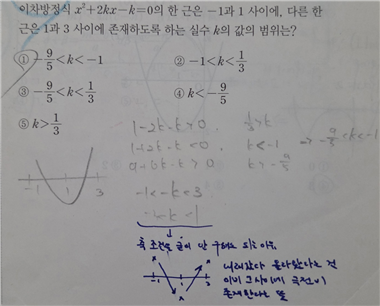 이차방정식 x²+2kx-k=0의 한 근은 -1과 1 사이에, 다른 한
근은 1과 3 사이에 존재하도록 하는 실수 k의 값의 범위는?
① -9/5<k<-1
② -1<k<1/3
③ -9/5<k<1/3
④ k<-9/5
⑤ k>1/3
1-2k-k>0
1/3>k
1+2k-k<0
k<-1
→ -9/5<k<-1
9+6k-k>0
k>-9/5
-1 1 3
-1<-k<3
축 조건을 굳이 안 구해도 되는 이유
-1 1 3
내려갔다 올라왔다는 건
이미 그 사이에 극점이
존재한다는 뜻